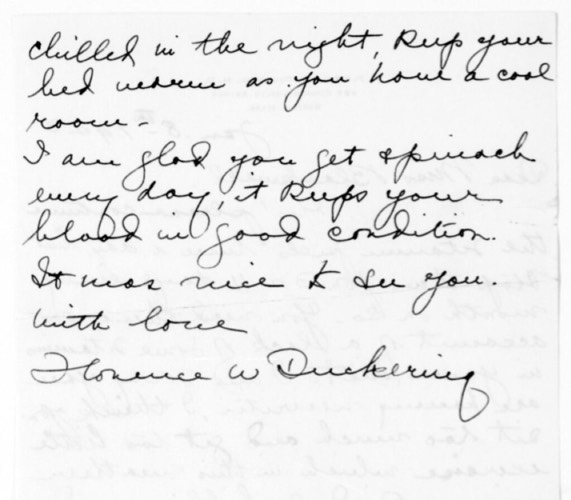 chilled in the night, keep your
bed warm as you have a cool
room -
I am glad you get spinach
every day, it keeps your
blood in good condition.
It was nice to see you -
with love
Florence W Duckering